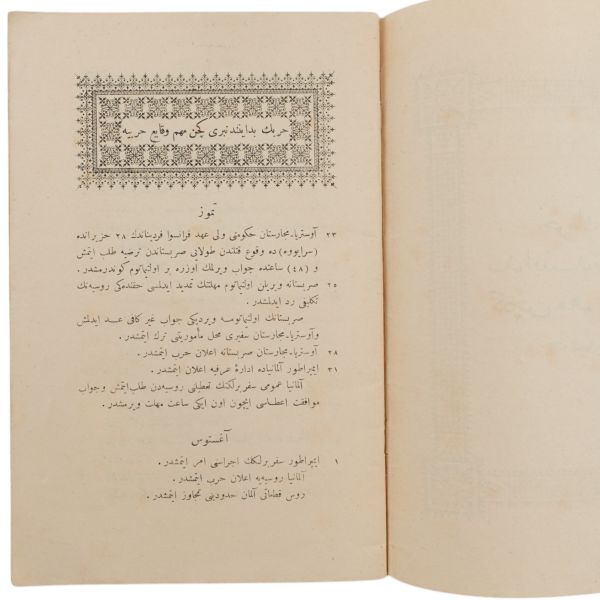 حربك بدايتندنبرى كچن مهم وقايع حربيه
تموز
٢٣ آوستريا-مجارستان حكومتى ولى عهد فرانسوا فرديناندك ٢٨ حزيرانده
(سرايوو)ده وقوع قتلندن طولايى صربستاندن ترضيه طلب ايتمش
و (٤٨) ساعتده جواب ويرلمك اوزره بر اولتيماتوم كوندرمشدر.
٢٥ صربستانه ويريلن اولتيماتوم مهلتنك تمديد ايدلمسى حقنده‌كى روسيه‌نك
تكليفى رد ايدلمشدر.
صربستانك اولتيماتومه ويرديكى جواب غير كافى عد ايدلمش
وآوستريا-مجارستان سفيرى محل مأموريتنى ترك ايتمشدر.
٢٨ آوستريا-مجارستان صربستانه اعلان حرب ايتمشدر.
٣١ ايمپراطور آلمانياده ادارهٔ عرفيه اعلان ايتمشدر.
آلمانيا عمومى سفربرلكنك تعطيلنى روسيه‌دن طلب ايتمش وجواب
موافقت اعطاسى ايچون اون ايكى ساعت مهلت ويرمشدر.
آغستوس
١ ايمپراطور سفربرلكك اجراسنى امر ايتمشدر.
آلمانيا روسيه‌يه اعلان حرب ايتمشدر.
روس قطعاتى آلمان حدودينى تجاوز ايتمشدر.